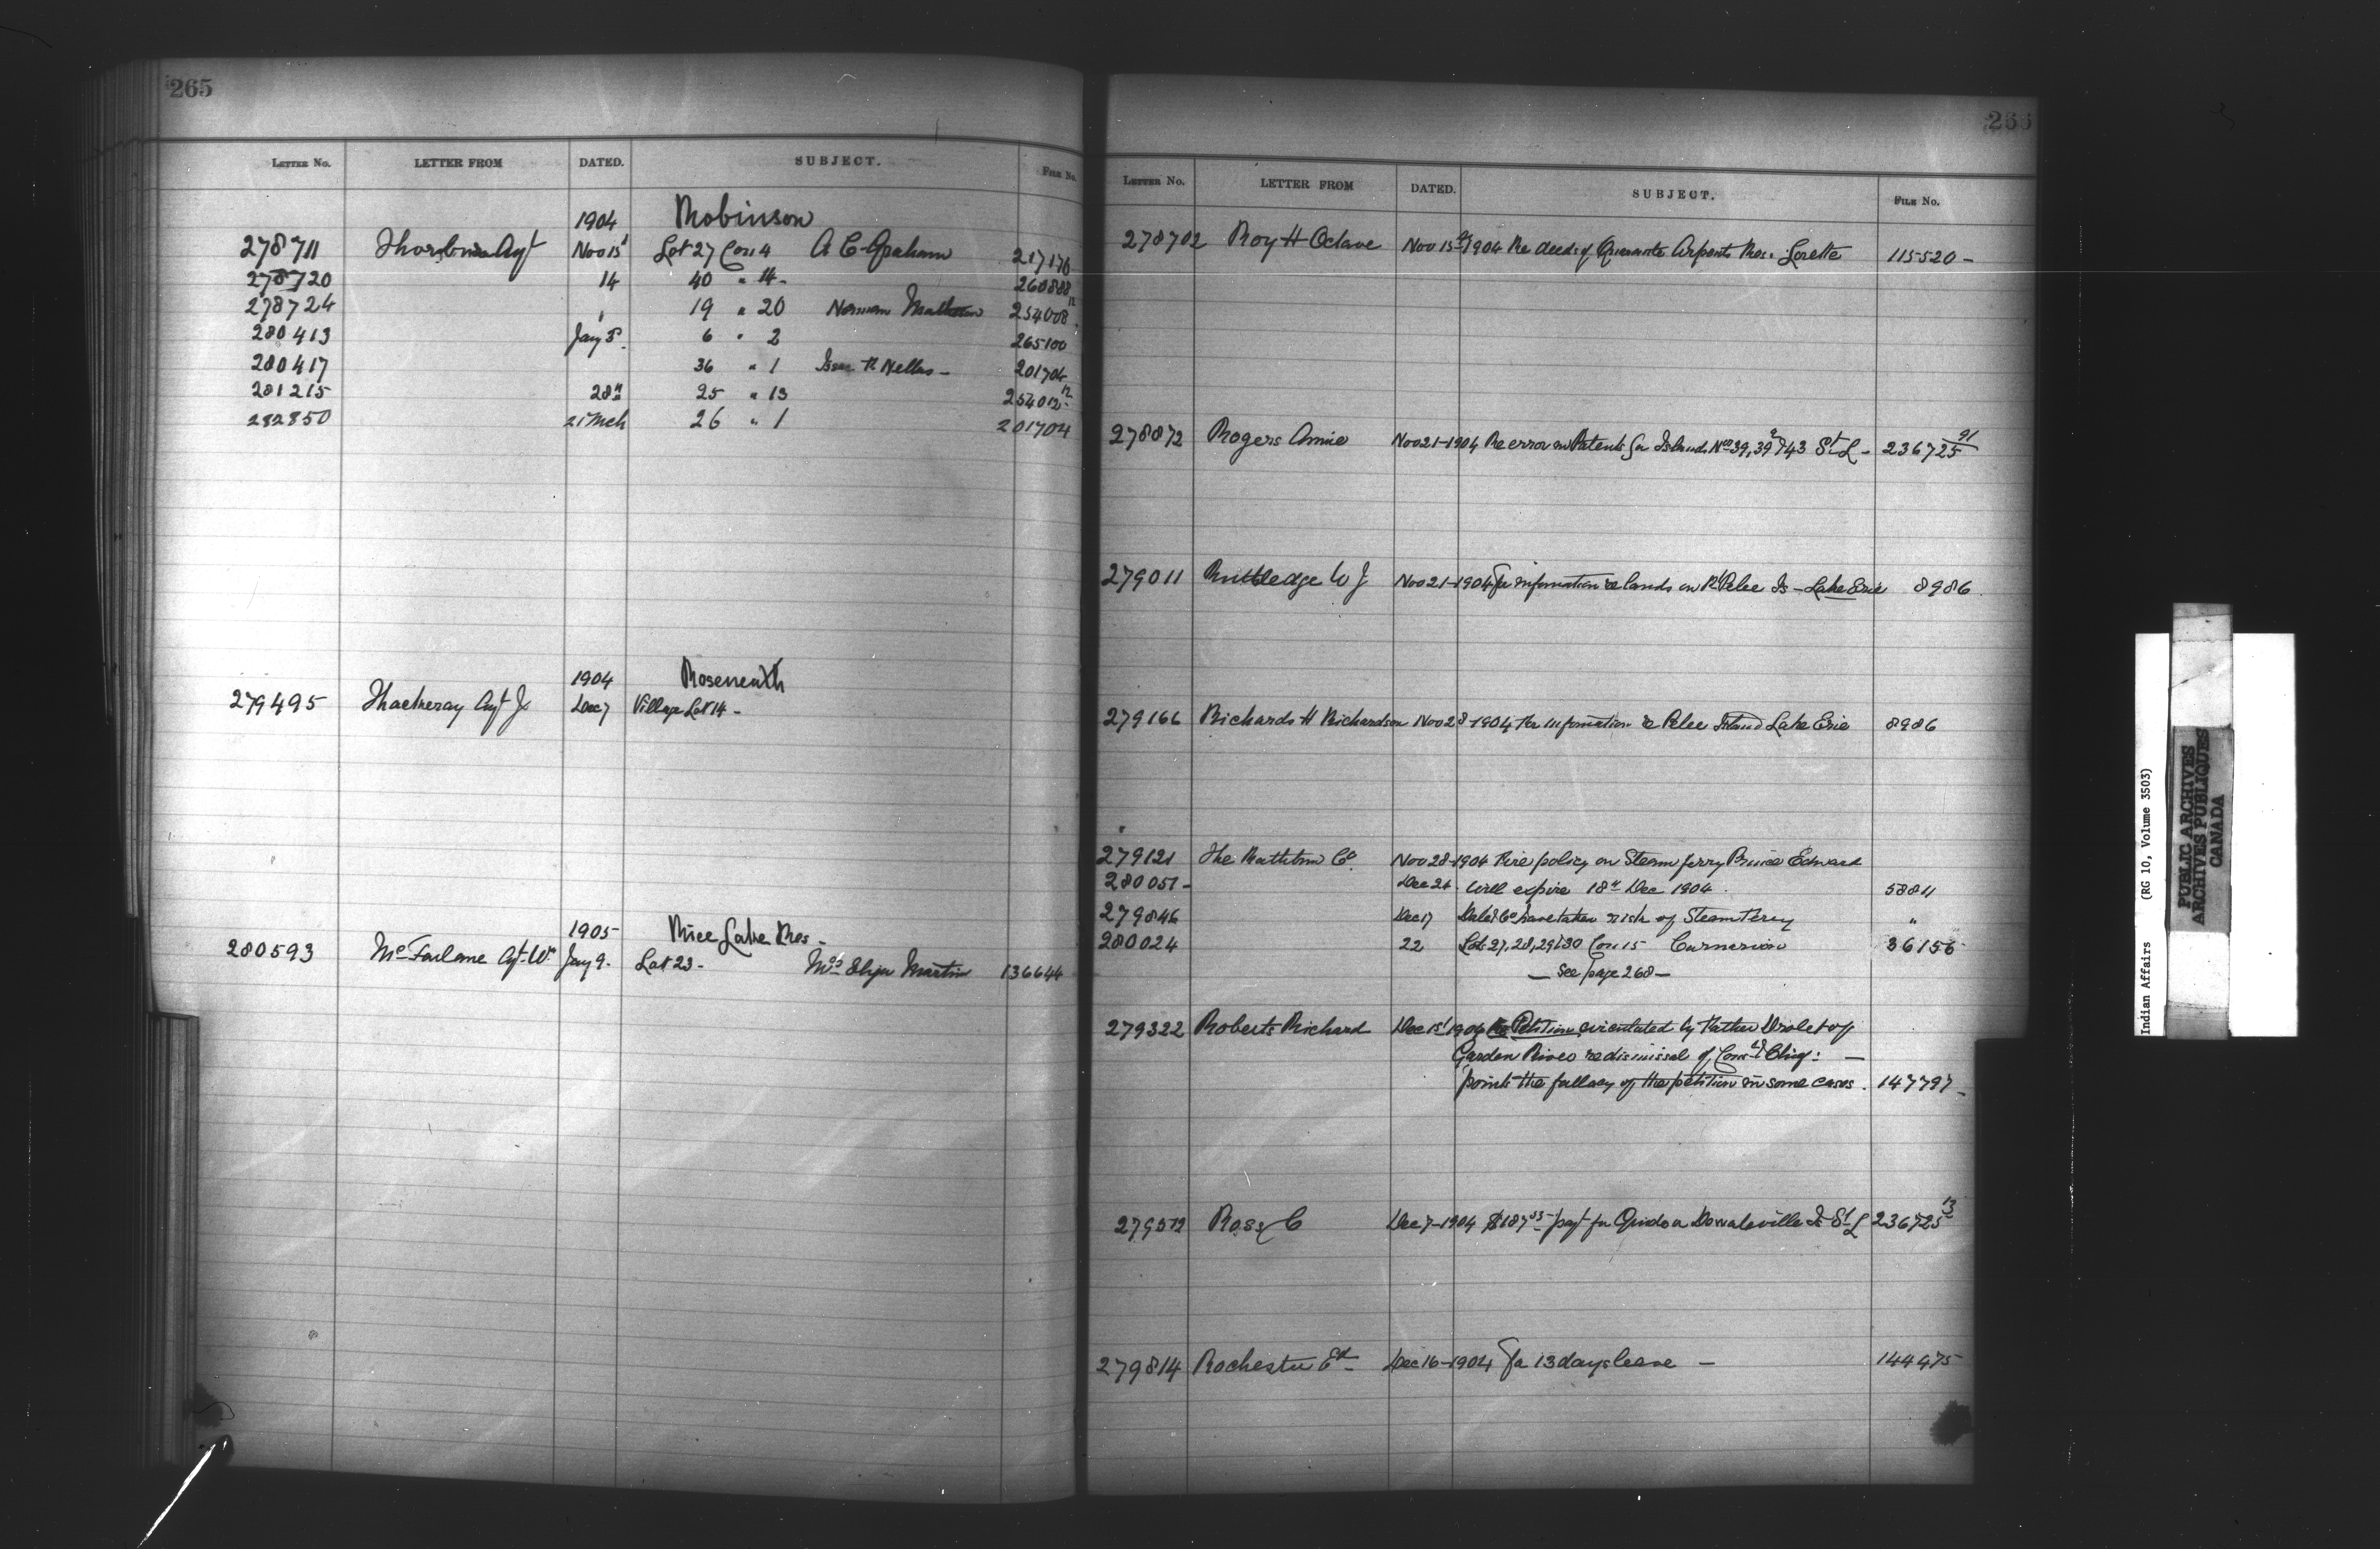 265
LETTER NO. LETTER FROM DATED. SUBJECT. FILE NO.
1904 Robinson
278711 Thorburn Agt Nov 15 Lot 27 Con 4 A C Graham 217176
278720 14 40 " 14 - 260888
278724 " 19 " 20 Norman 254008 12
280413 Jany 5. 6 " 2 265100
280417 36 " 1 R Nelles - 201704
281215 28th 25 " 13 254012 12
282850 21 Mch 26 " 1 201704
1904 Roseneath
279495 Thackeray Agt J. Dec 7 Village Lot 14 -
1905 Rice Lake Res -
280593 McFarlane Agt Wm Jany 9. Lot 23 - Mrs Elija Martin 136644
266
LETTER NO. LETTER FROM DATED. SUBJECT. FILE NO.
278702 Roy H Octave Nov 15th 1904 Re deeds of Quarante Arpents Res: Lorette 115520 -
278872 Rogers Annie Nov 21-1904 Re error in Patents for Islands Nos 39, 39a & 43 St L - 236725 91
279011 Rutledge W J Nov 21-1904 For information re lands on Pt Pelee Is - Lake Erie 8986.
279166 Richards H Richardson Nov 28-1904 For information re Pelee Island Lake Erie 8986
279121 The Rathbun Co. Nov 28-1904 Fire policy on Steam ferry Prince Edward
280051 - Dec 24. Will expire 18th Dec 1904. 58811
279846 Dec 17 have taken risk of Steam Ferry "
280024 22 Lots 27, 28, 29 & 30 Con 15 Carnarvon 36156
- See page 268 -
279322 Roberts Richard Dec 1st 1904 Re Petition circulated by Father Drolet of
Garden River re dismissal of Consts & Chief: -
points the fallacy of the petition in some cases. 147797 -
279572 Ross C Dec 7-1904 $187 payt for Is St L 236725 13
279814 Rochester Ed - Dec 16-1904 For 13 days leave - 144475
Indian Affairs (RG 10, Volume 3503)
PUBLIC ARCHIVES
ARCHIVES PUBLIQUES
CANADA